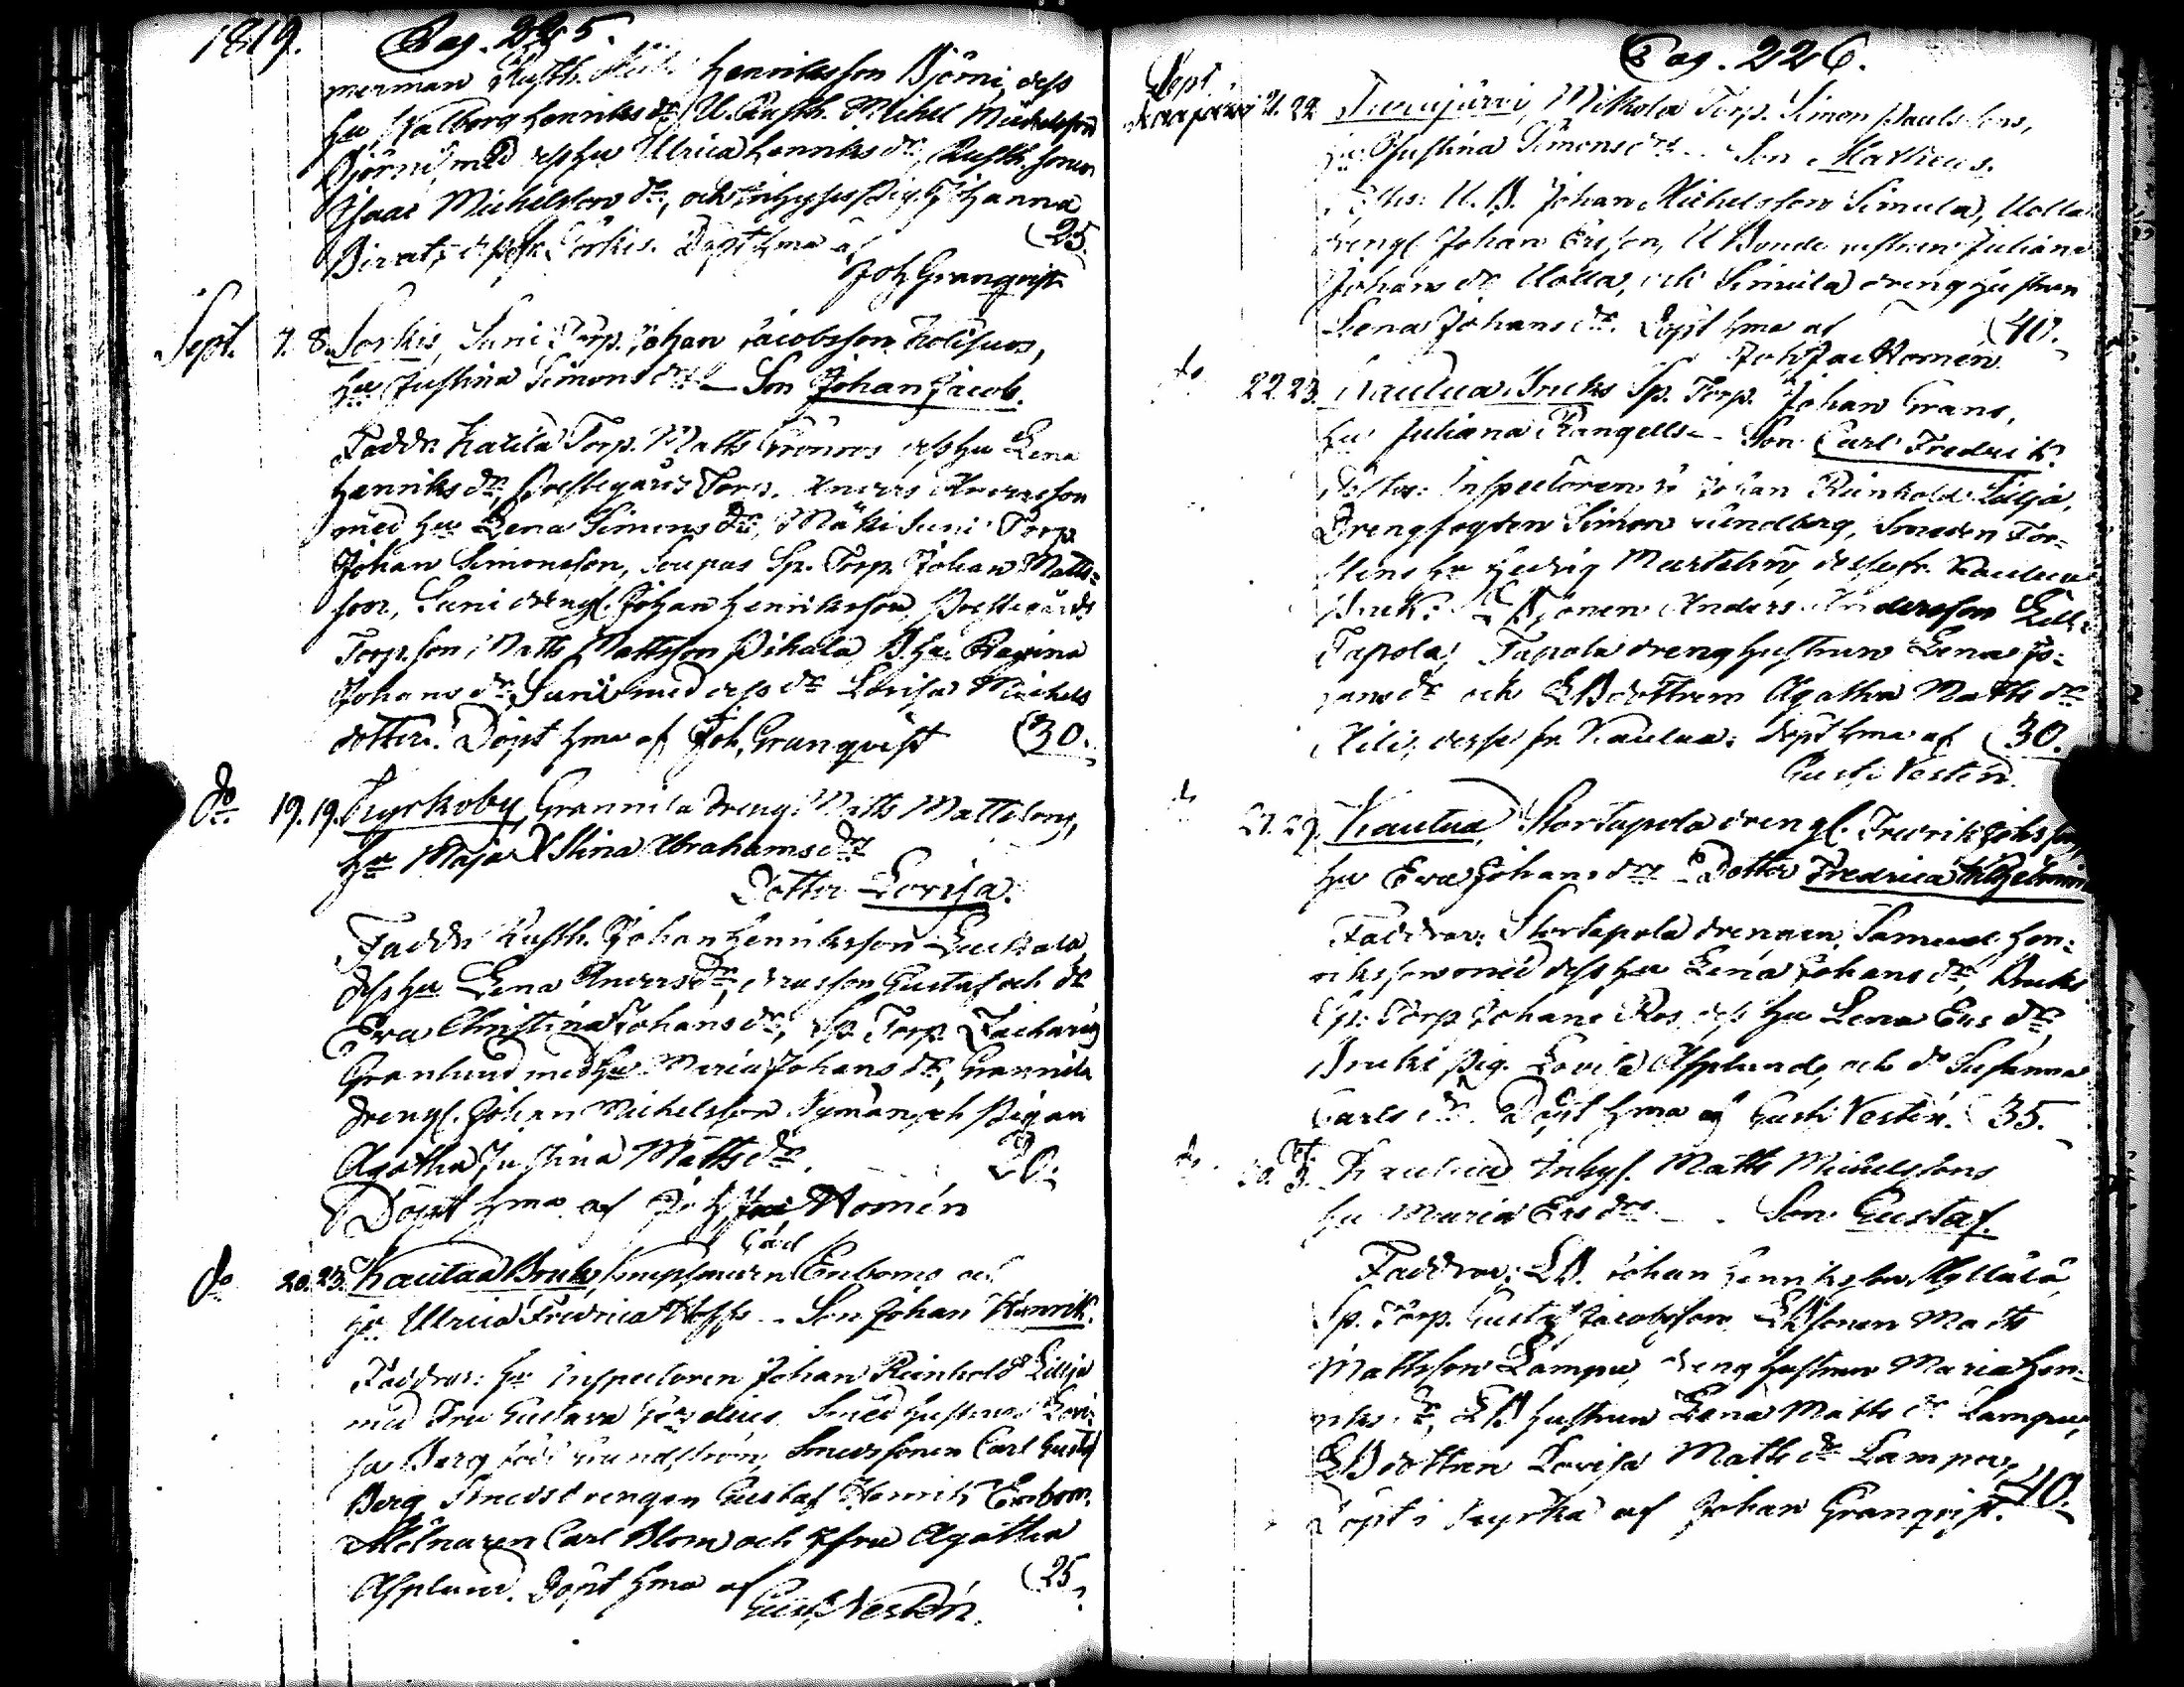 1819. Pag. 225.
merman Rusth. Henriksson Björni, dess
hu Walborg Henriks dr, U. Rusth. Michel Michelsson
Björni, med dess hu Ulrica Henriks dr, Rusth. sonen
Isaac Michelsson dr, och inhyses pig. Johanna
Sorkis. Döpt hma af (25.
Joh Granqvist
Sept. 7. 8. Sorkis, Suni Torp. Johan Jacobsson
hu Justina Simons dr — Son Johan Jacob.
Faddr. Torp. Matts Grönroos dess hu Lena
Henriks dr, Prestegårds Torp. Anders Andersson
med hu Lena Simons dr, Mäki Suni Torp.
Johan Simonsson, Soupas Sp. Torp. Johan Matts-
son, Suni drengl. Johan Henriksson, Prestegårds
Torp. son Matts Mattsson Pihala, B. hu Regina
Johans dr Suni med dess dr Lovisa Michels
dotter. Döpt hma af Joh. Granqvist (30.
do 19. 19. Kyrkoby, Grannila dreng. Matts Mattssons,
hu Maja Stina Abrahams dr
Dotter Lovisa.
Faddr. Rusth. Johan Henriksson
dess hu Lena Anders dr, deras son Gustaf och dr
Eva Christina Johans dr, Sp. Torp. Zacharis
Granlund med hu Maria Johans dr, Grannila
drengl. Johan Michelsson Nyman och pigan
Agatha Justina Matts dr. 20.
Döpt hma af Joh Jac Homén
do 20. 23. Kautua Bruk, Carl Enboms och
hu Ulrica Fredrica Hoffs — Son Johan Henrik.
Faddrar: hr Inspectoren Johan Reinhold Lillja
med Fru Gustava Smed hustrun Lovi-
sa Berg född Sundström, Smedssonen Carl Gustaf
Berg, Smedsdrengen Gustaf Henrik Enbom,
Mölnaren Carl Blom och Agatha
Asplund. Döpt hma af (25.
Gust. Vestén.
Pag. 226.
Sept. 21. 22. Mikola Torp. Simon Paulssons,
hu Justina Simons dr — Son Matheus.
U. B. Johan Michelsson Simula, Uolla
drengl. Johan Ersson, U Bonde hustrun Juliana
Johans dr Uolla, och Simula dreng hustrun
Lena Johans dr. Döpt hma af (40.
Joh Jac Homén.
do 22. 23. Kautua Bruks Sp. Torp. Johan Grans,
hu Juliana Rangells — Son Carl Fredrik.
Inspectoren hr Johan Reinhold Lillja,
Drengfogden Simon Lundberg, Smeden
hu Hedvig Martelin, dessa fr. Kautua
Bruk. LBsonen Anders Andersson Lill-
Tapola, Tapola dreng hustrun Lena Jo-
hans dr och LBdottren Agatha Matts dr
dessa fr Kautua. Döpt hma af (30.
Gust. Vestén.
do 27. 29. Kautua, Stortapola drengl. Fredrik
hu Eva Johans dr — Dotter Fredrica Wilhelmina
Faddrar: Stortapola drengen Samuel Hen-
riksson med dess hu Lena Johans dr, Bruks
Sp. Torp. Johan Ros dess hu Lena Ers dr
Bruks pig. Lovisa Asplund, och do Susanna
Carls dr. Döpt hma af Gust. Vestén. 35.
do 30. 3. Kautua Inhys. Matts Michelssons
hu Maria Ers dr — Son Gustaf.
Faddrar: LB. Johan Henriksson Kyllälä
Sp. Torp. Gustaf Jacobsson LBsonen Matts
Mattsson Lampu, dreng hustrun Maria Hen-
riks dr, LB hustrun Lena Matts dr Lampu,
LBdottren Lovisa Matts dr Lampu,
Döpt i Kyrka af Johan Granqvist. 40.